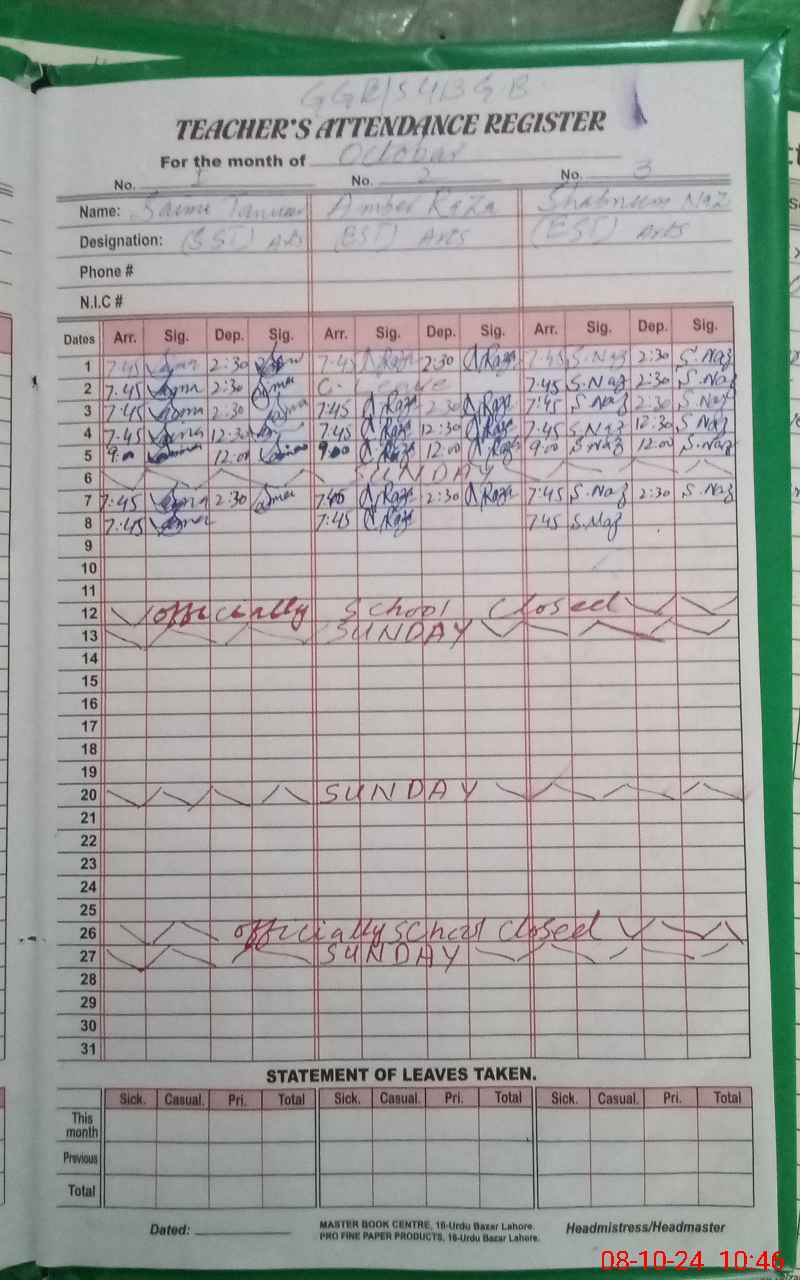 TEACHER'S ATTENDANCE REGISTER
For the month of October
No. 1 No. 2 No. 3
Name: Amber Raza Shabnum Naz
Designation: (SST) Arts (EST) Arts (EST) Arts
Phone #
N.I.C #
Dates Arr. Sig. Dep. Sig. Arr. Sig. Dep. Sig. Arr. Sig. Dep. Sig.
1 7:45 2:30 7:45 Raza 2:30 Raza 7:45 S.Naz 2:30 S.Naz
2 7:45 2:30 C. Leave 7:45 S.Naz 2:30 S.Naz
3 7:45 2:30 7:45 Raza 2:30 Raza 7:45 S.Naz 2:30 S.Naz
4 7:45 12:30 7:45 Raza 12:30 Raza 7:45 S.Naz 12:30 S.Naz
5 9:00 12:00 9:00 Raza 12:00 Raza 9:00 S.Naz 12:00 S.Naz
6 SUNDAY
7 7:45 2:30 7:45 Raza 2:30 Raza 7:45 S.Naz 2:30 S.Naz
8 7:45 7:45 Raza 7:45 S.Naz
9
10
11
12 officially School Closed
13 SUNDAY
14
15
16
17
18
19
20 SUNDAY
21
22
23
24
25
26 officially school closed
27 SUNDAY
28
29
30
31
STATEMENT OF LEAVES TAKEN.
Sick. Casual. Pri. Total Sick. Casual. Pri. Total Sick. Casual. Pri. Total
This month
Previous
Total
Dated: MASTER BOOK CENTRE, 16-Urdu Bazar Lahore. Headmistress/Headmaster
PRO FINE PAPER PRODUCTS, 16-Urdu Bazar Lahore.
08-10-24 10:46